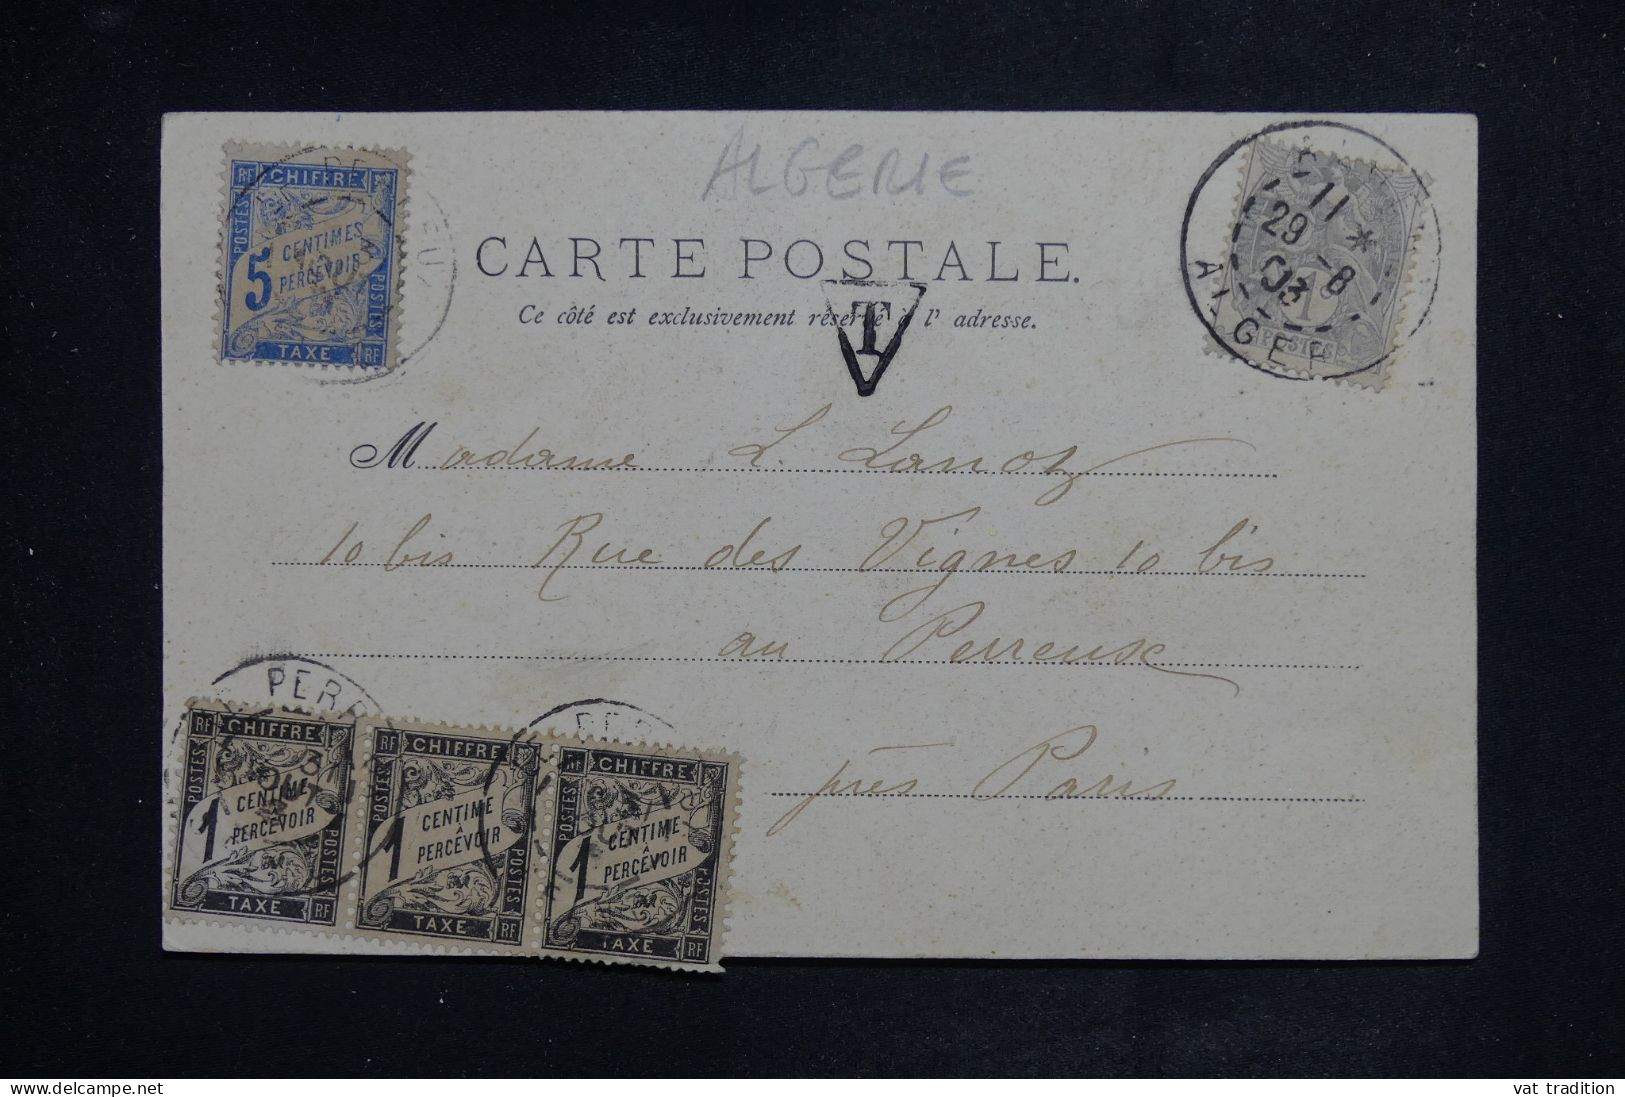 ALGERIE
CARTE POSTALE.
Ce côté est exclusivement réservé à l' adresse.
T
RF CHIFFRE
POSTES
5 CENTIMES
À PERCEVOIR
POSTES
TAXE RF
11
29 * -8
03
ALGER
1c
POSTES
Madame L. Lanoz
10 bis Rue des Vignes 10 bis
au Perreux
près Paris
PERR
RF CHIFFRE
POSTES
1 CENTIME
À PERCEVOIR
POSTES
TAXE RF
RF CHIFFRE
POSTES
1 CENTIME
À PERCEVOIR
POSTES
TAXE RF
RF CHIFFRE
POSTES
1 CENTIME
À PERCEVOIR
POSTES
TAXE RF
www.delcampe.net
vat tradition